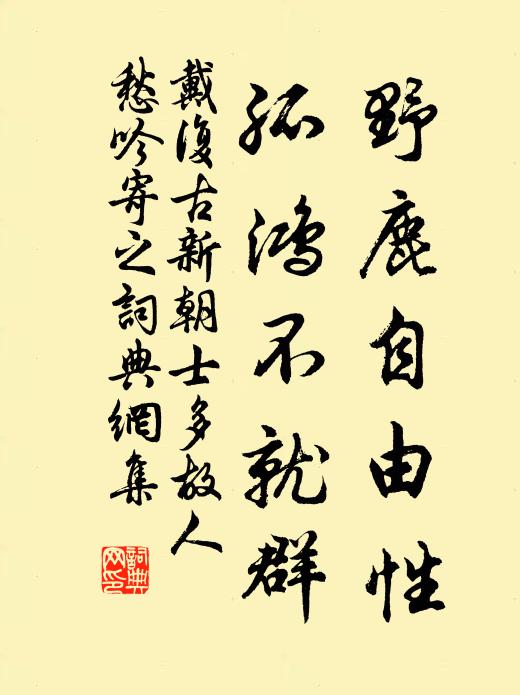 野鹿自由性
孤鴻不就群
戴復古新朝士多故人
愁吟寄之詞典網集
詞典网印